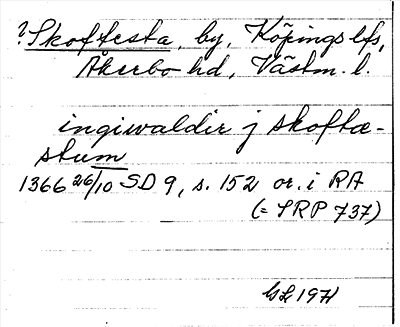 ? Skoftesta, by, Köpings lfs,
Åkerbo hd, Västm. l.
ingiwaldir j skoftæ-
stum
1366 26/10 SD 9, s. 152 or. i RA
(= SRP 737)
GL 1971